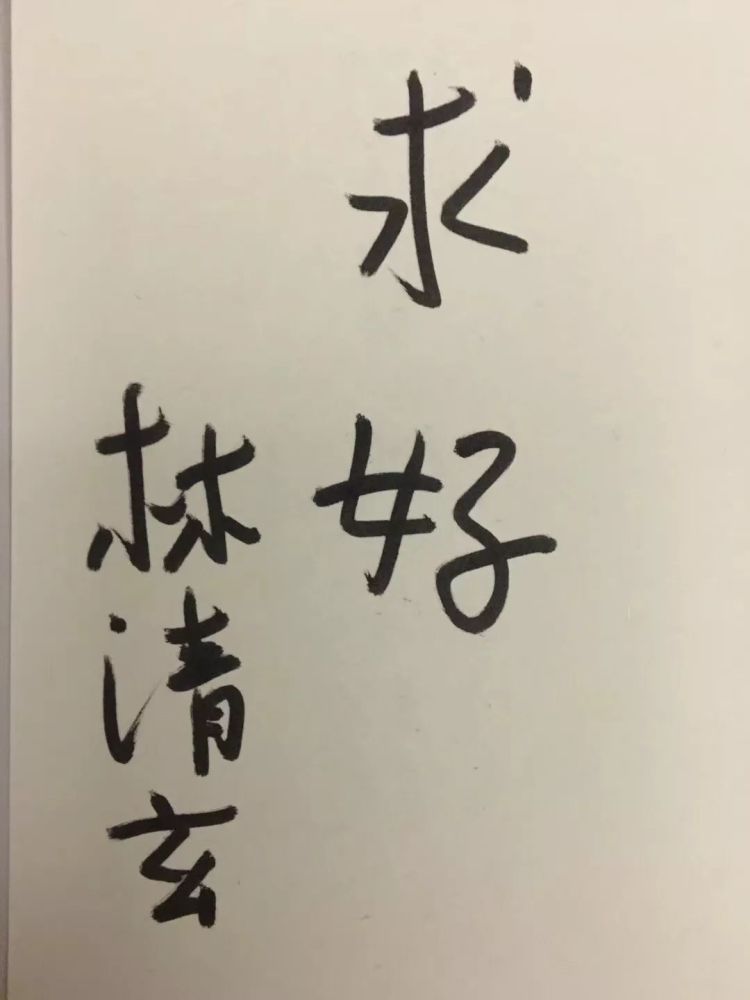 求好
林清玄